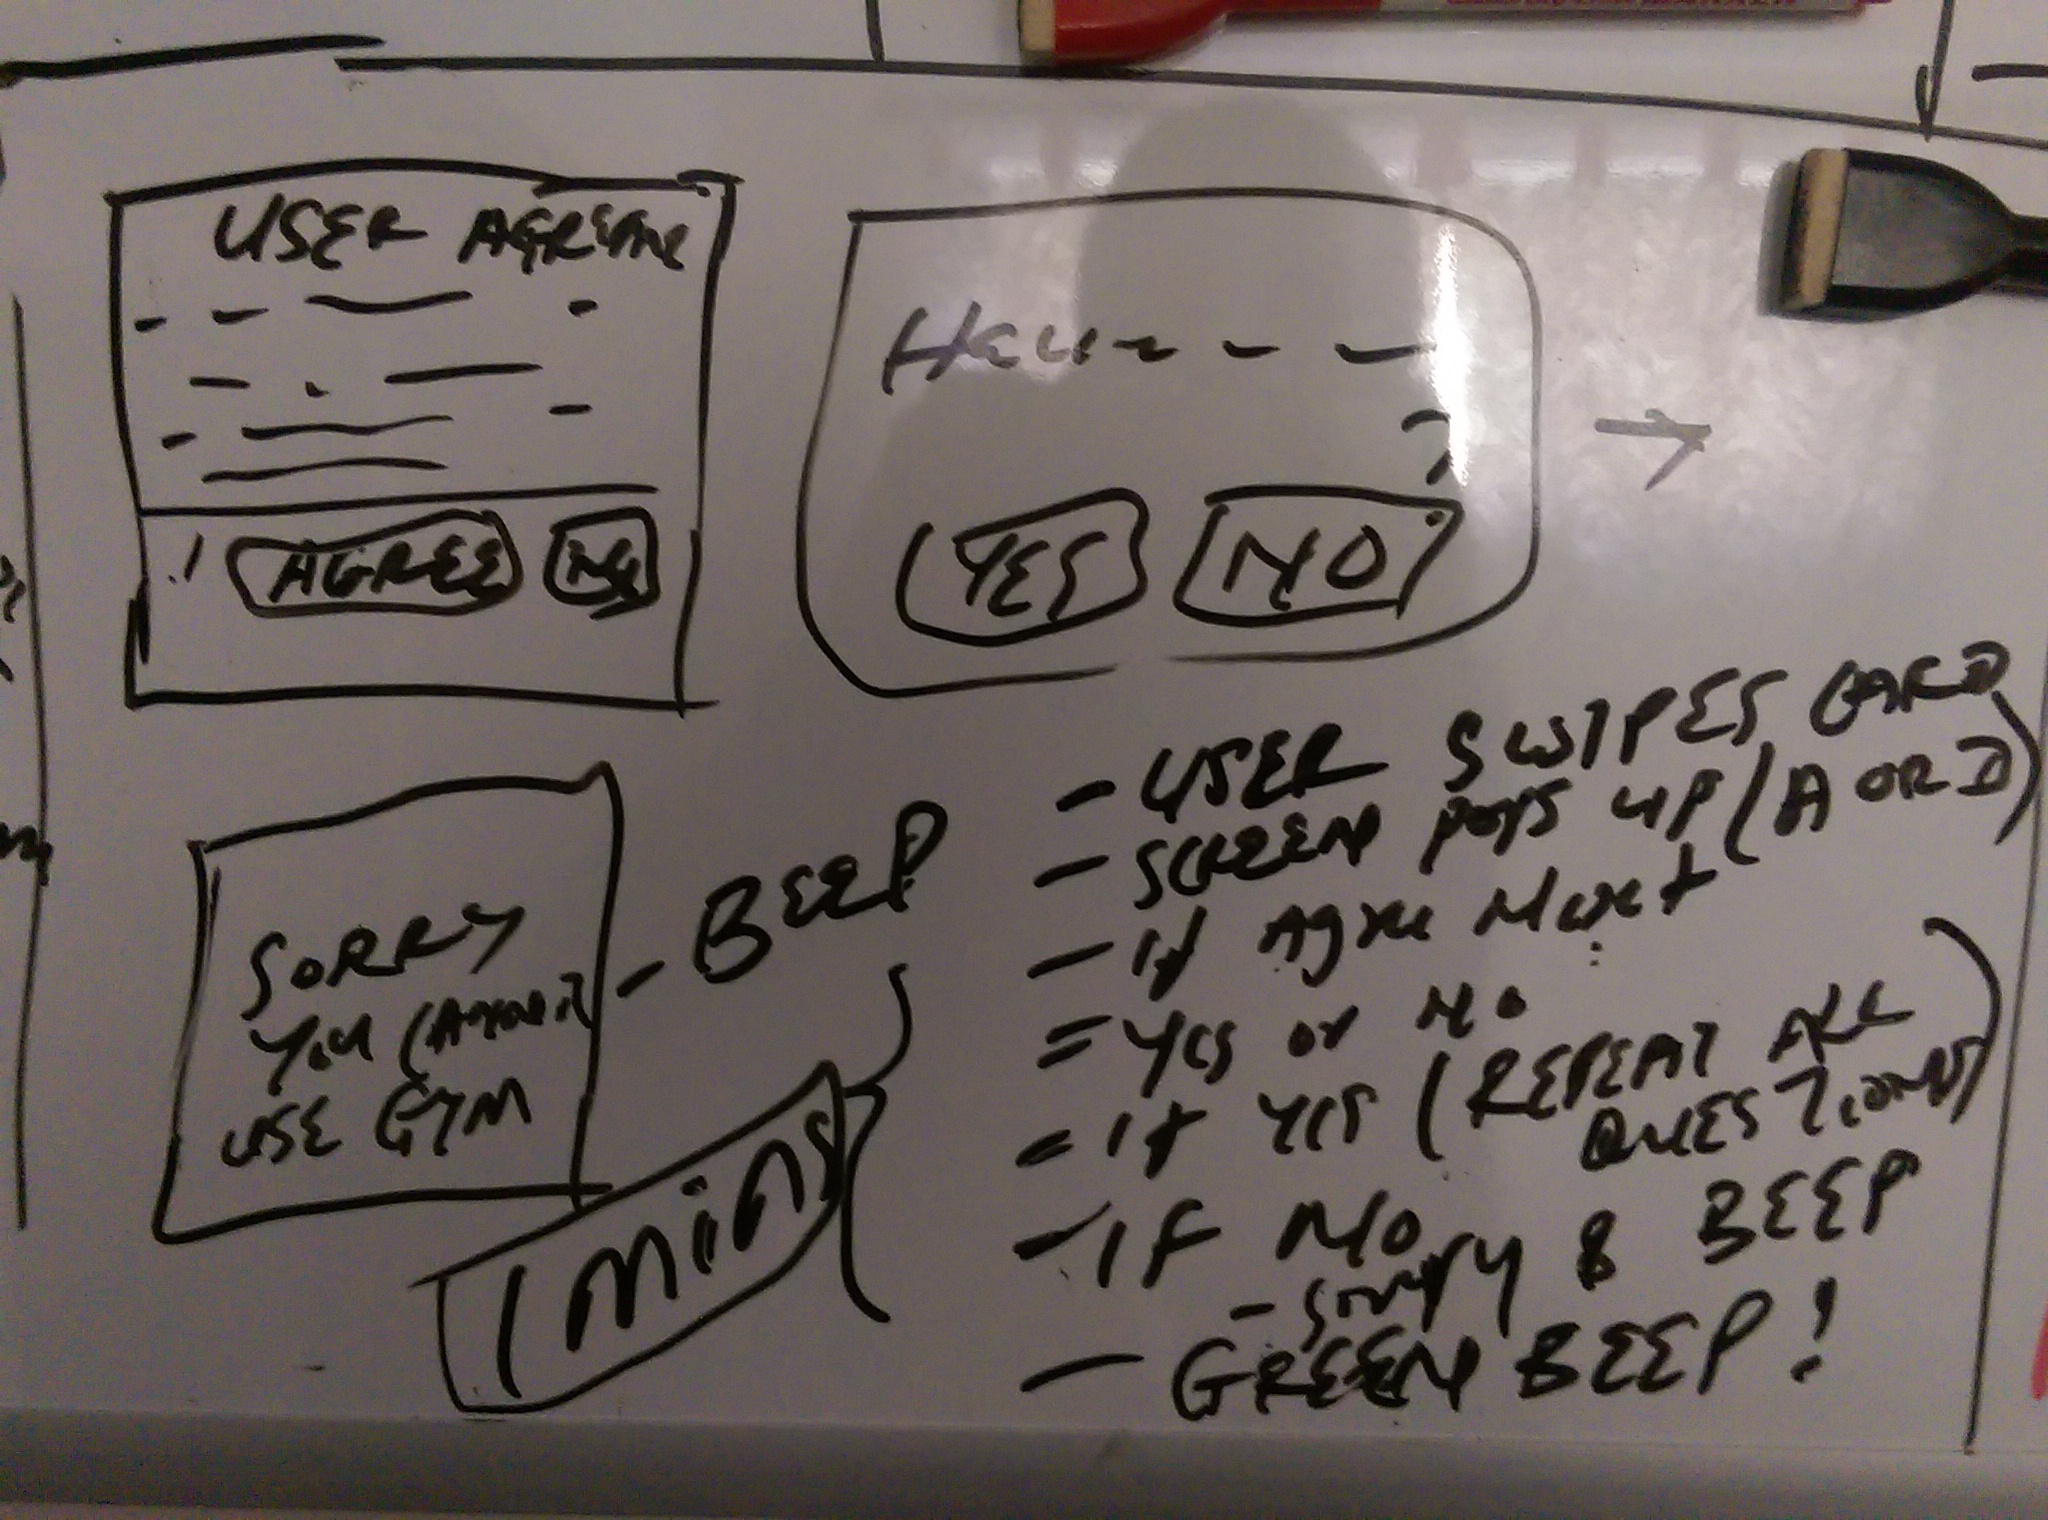 USER AGREEME
AGREE
HAVE
?
YES NO
SORRY
YOU CANNOT
USE GYM
- BEEP
1 mins
- USER SWIPES CARD
- SCREEN POPS UP (A OR D)
- If Agree Next
= Yes or No
= If Yes (REPEAT ALL
QUESTIONS)
- IF NO
- Sorry & BEEP
- GREEN BEEP!